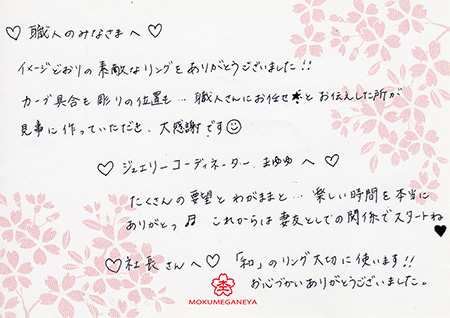 ♡ 職人のみなさまへ ♡
イメージどおりの素敵なリングをありがとうございました!!
カーブ具合も彫りの位置も… 職人さんにお任せ★とお伝えした所が
見事に作っていただき、大感謝です☺
♡ ジュエリーコーディネーター まゆゆ へ ♡
たくさんの要望とわがままと… 楽しい時間を本当に
ありがとっ♫ これからは妻友としての関係でスタートね♥
♡社長さんへ♡ 「和」のリング大切に使います!!
お心づかいありがとうございました。
MOKUMEGANEYA